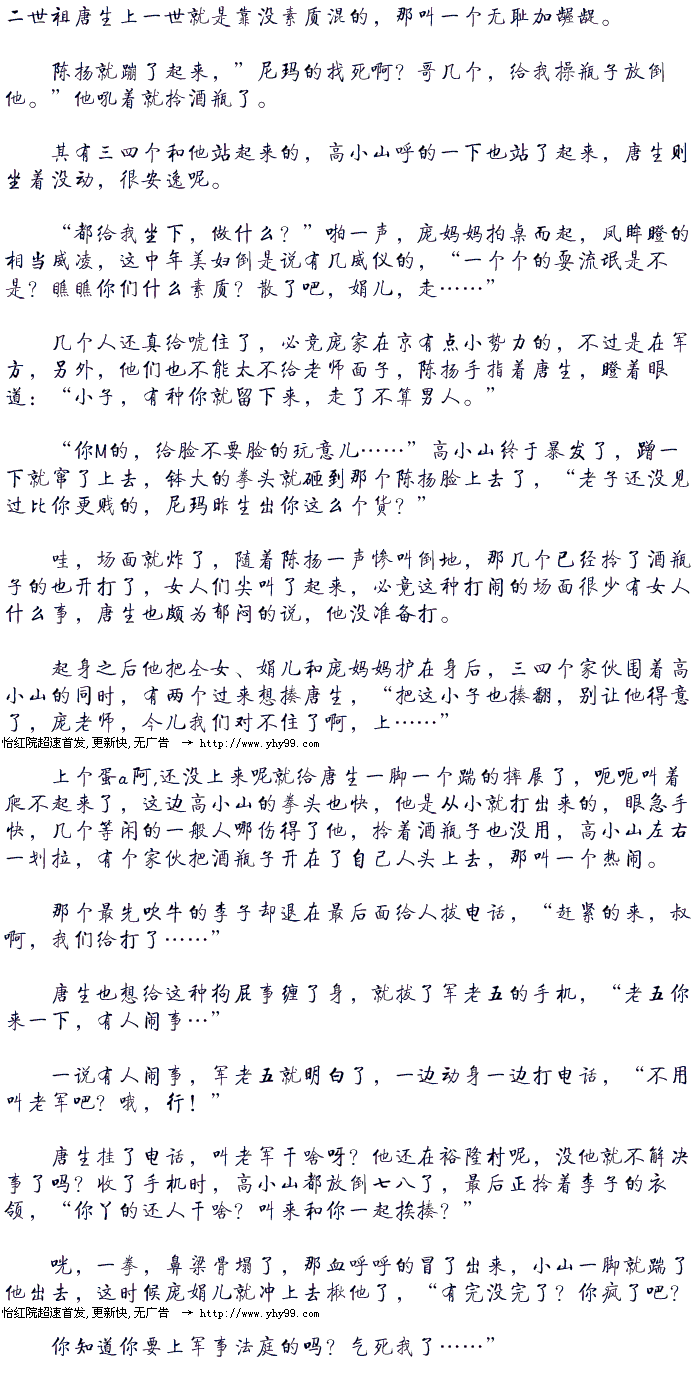 二世祖唐生上一世就是靠没素质混的，那叫一个无耻加龌龊。
陈扬就蹦了起来，”尼玛的找死啊？哥几个，给我操瓶子放倒
他。”他吼着就拎酒瓶了。
其有三四个和他站起来的，高小山呼的一下也站了起来，唐生则
坐着没动，很安逸呢。
“都给我坐下，做什么？”啪一声，庞妈妈拍桌而起，凤眸瞪的
相当威凌，这中年美妇倒是说有几威仪的，“一个个的耍流氓是不
是？瞧瞧你们什么素质？散了吧，娟儿，走……”
几个人还真给唬住了，必竞庞家在京有点小势力的，不过是在军
方，另外，他们也不能太不给老师面子，陈扬手指着唐生，瞪着眼
道：“小子，有种你就留下来，走了不算男人。”
“你M的，给脸不要脸的玩意儿……”高小山终于暴发了，蹭一
下就窜了上去，钵大的拳头就砸到那个陈扬脸上去了，“老子还没见
过比你更贱的，尼玛昨生出你这么个货？”
哇，场面就炸了，随着陈扬一声惨叫倒地，那几个已经拎了酒瓶
子的也开打了，女人们尖叫了起来，必竟这种打闹的场面很少有女人
什么事，唐生也颇为郁闷的说，他没准备打。
起身之后他把仝女、娟儿和庞妈妈护在身后，三四个家伙围着高
小山的同时，有两个过来想揍唐生，“把这小子也揍翻，别让他得意
了，庞老师，今儿我们对不住了啊，上……”
怡红院超速首发，更新快，无广告 → http://www.yhy99.com
上个蛋a阿,还没上来呢就给唐生一脚一个踹的摔展了，呃呃叫着
爬不起来了，这边高小山的拳头也快，他是从小就打出来的，眼急手
快，几个等闲的一般人哪伤得了他，拎着酒瓶子也没用，高小山左右
一划拉，有个家伙把酒瓶子开在了自己人头上去，那叫一个热闹。
那个最先吹牛的李子却退在最后面给人拔电话，“赶紧的来，叔
啊，我们给打了……”
唐生也想给这种狗屁事缠了身，就拔了军老五的手机，“老五你
来一下，有人闹事…”
一说有人闹事，军老五就明白了，一边动身一边打电话，“不用
叫老军吧？哦，行！”
唐生挂了电话，叫老军干啥呀？他还在裕隆村呢，没他就不解决
事了吗？收了手机时，高小山都放倒七八了，最后正拎着李子的衣
领，“你丫的还人干啥？叫来和你一起挨揍？”
咣，一拳，鼻梁骨塌了，那血呼呼的冒了出来，小山一脚就踹了
他出去，这时候庞娟儿就冲上去揪他了，“有完没完了？你疯了吧？
怡红院超速首发，更新快，无广告 → http://www.yhy99.com
你知道你要上军事法庭的吗？气死我了……”